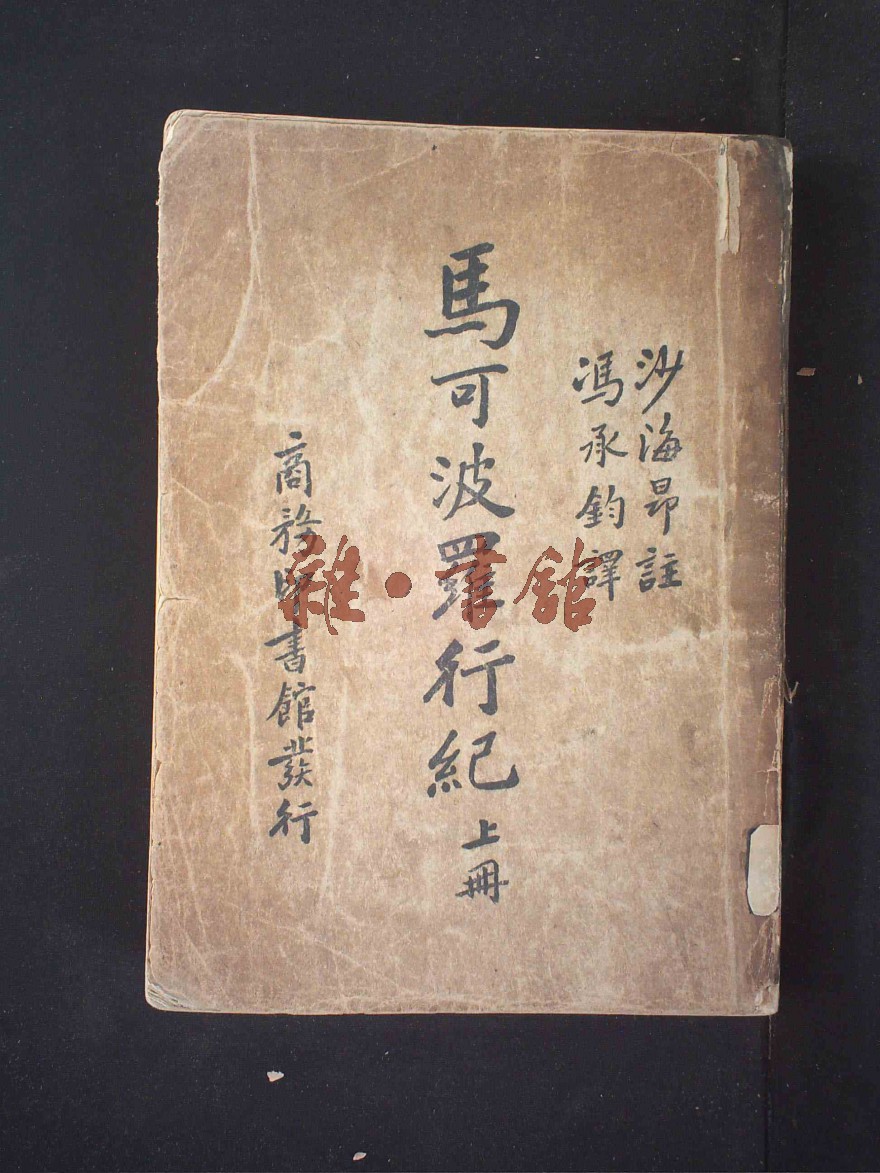 沙海昂註
馮承鈞譯
馬可波羅行紀 上冊
商務印書館發行
雜·書館